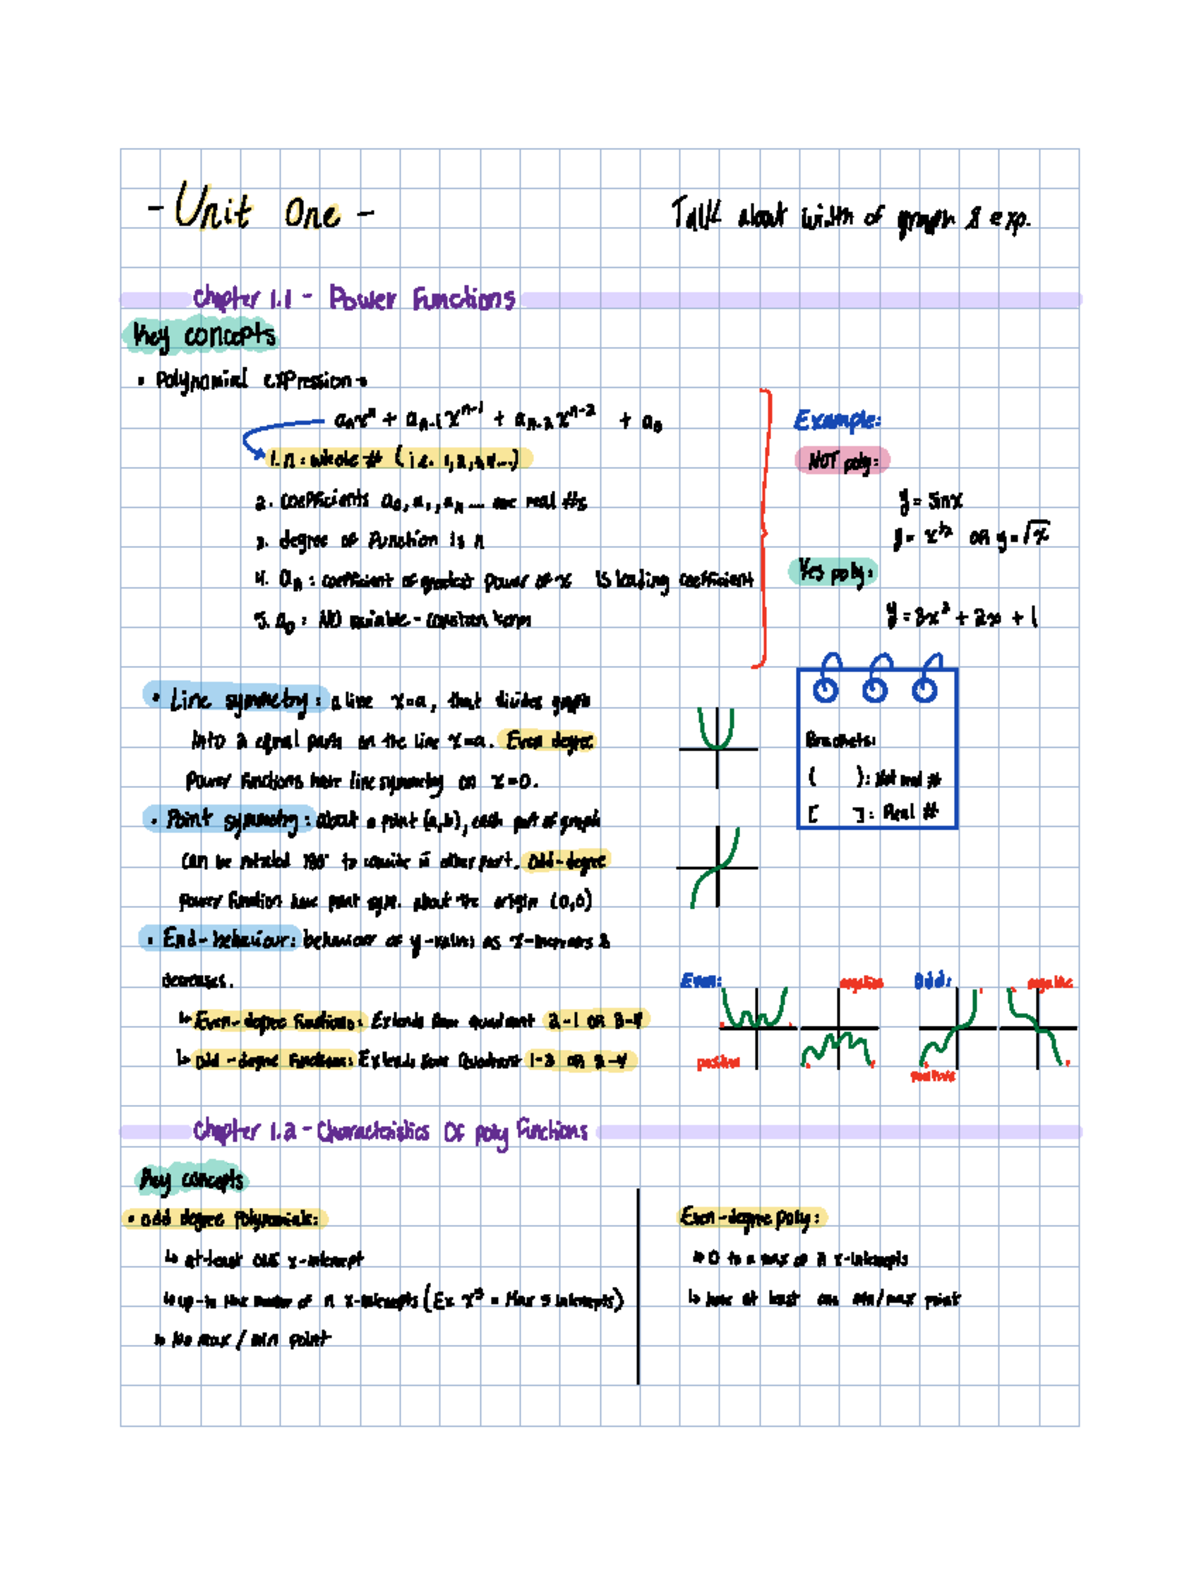 - Unit One -
Talk about width of graph & exp.
Chapter 1.1 - Power Functions
Key concepts
• Polynomial expression →
aₙxⁿ + aₙ₋₁xⁿ⁻¹ + aₙ₋₂xⁿ⁻² + a₀
1. n: whole # (i.e. 1,2,3,4...)
2. coefficients a₀, a₁, aₙ ... are real #s
3. degree of function is n
4. aₙ: coefficient of greatest power of x is leading coefficient
5. a₀: NO variable - constant term
Example:
NOT poly:
y = sinx
y = x^1/2 OR y = √x
Yes poly:
y = 3x² + 2x + 1
• Line symmetry: a line x=a, that divides graph
into 2 equal parts on the line x=a. Even degree
power functions have line symmetry on x=0.
• Point symmetry: about a point (a,b), each part of graph
can be rotated 180° to other part. Odd-degree
power function have point sym. about the origin (0,0)
Brackets:
( ): Not real #
[ ]: Real #
• End-behaviour: behaviour of y-values as x-increases &
decreases.
↳ Even-degree functions: Extends from quadrant 2-1 OR 3-4
↳ Odd-degree functions: Extends from Quadrant 1-3 OR 2-4
Even:
negative
Odd:
negative
positive
positive
Chapter 1.2 - Characteristics Of poly Functions
Key concepts
• odd degree polynomials:
↳ at-least one x-intercept
↳ up-to max number of n x-intercepts (Ex. = Max 5 intercepts)
↳ No max / min point
Even-degree poly:
↳ 0 to a max of n x-intercepts
↳ have at least one min/max point